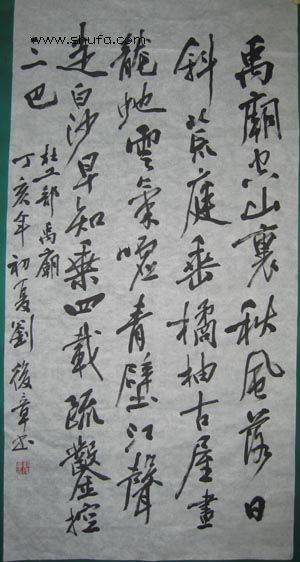 www.shufa.com
禹廟空山裏秋風落日
斜荒庭垂橘柚古屋畫
龍蛇雲氣噓青壁江聲
走白沙早知乘四載疏鑿控
三巴
杜工部禹廟
丁亥年初夏劉俊章书